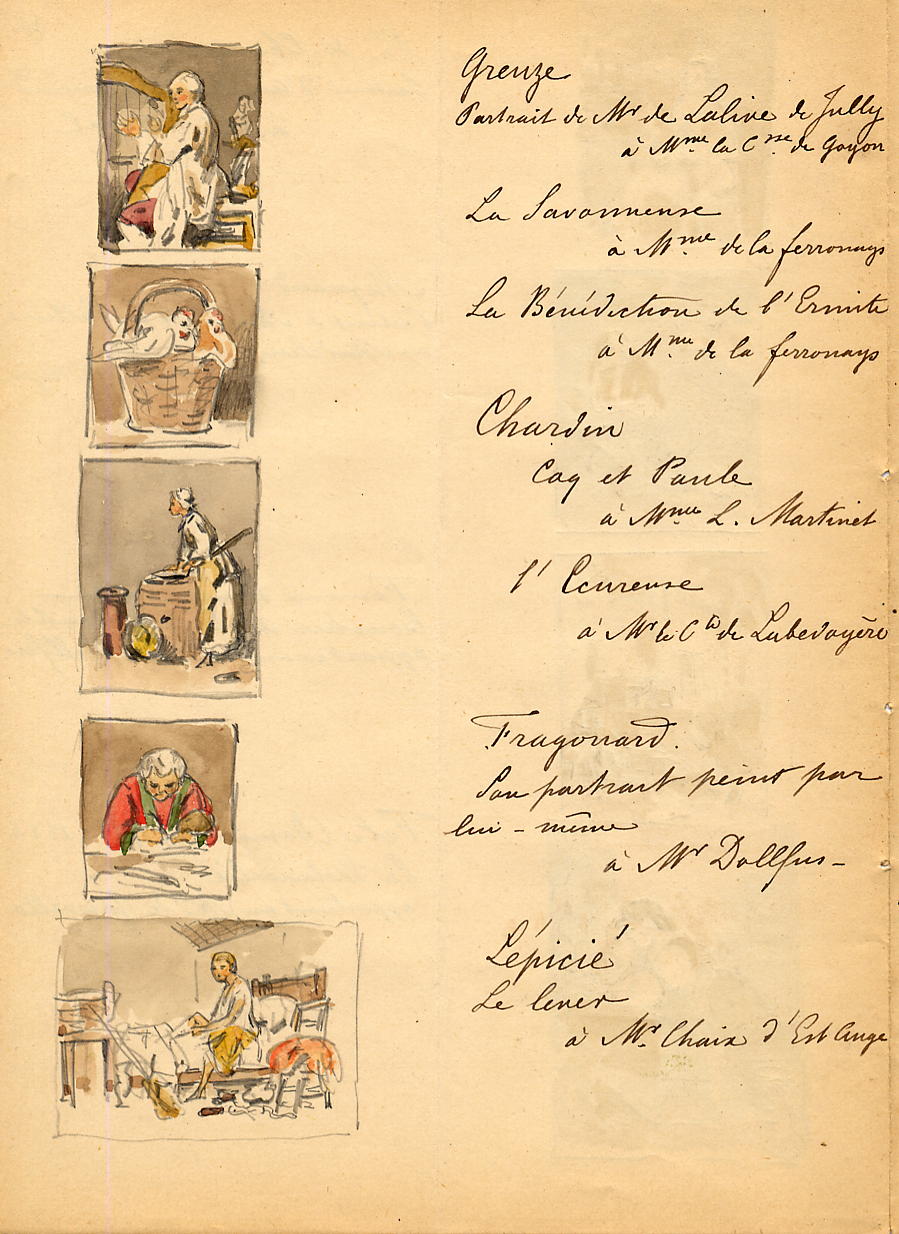 Greuze
Portrait de Mr de Lalive de Jully
à Mme la Csse de Goyon
La Savonneuse
à Mme de la ferronays
La Bénédiction de l'Ermite
à Mme de la ferronays
Chardin
Coq et Poule
à Mme L. Martinet
l'Ecureuse
à Mr le Cte de Labedoyère
Fragonard.
Son portrait peint par
lui-même
à Mr Dollfus-
Lépicié
Le lever
à Mr. Chaix d'Est Ange